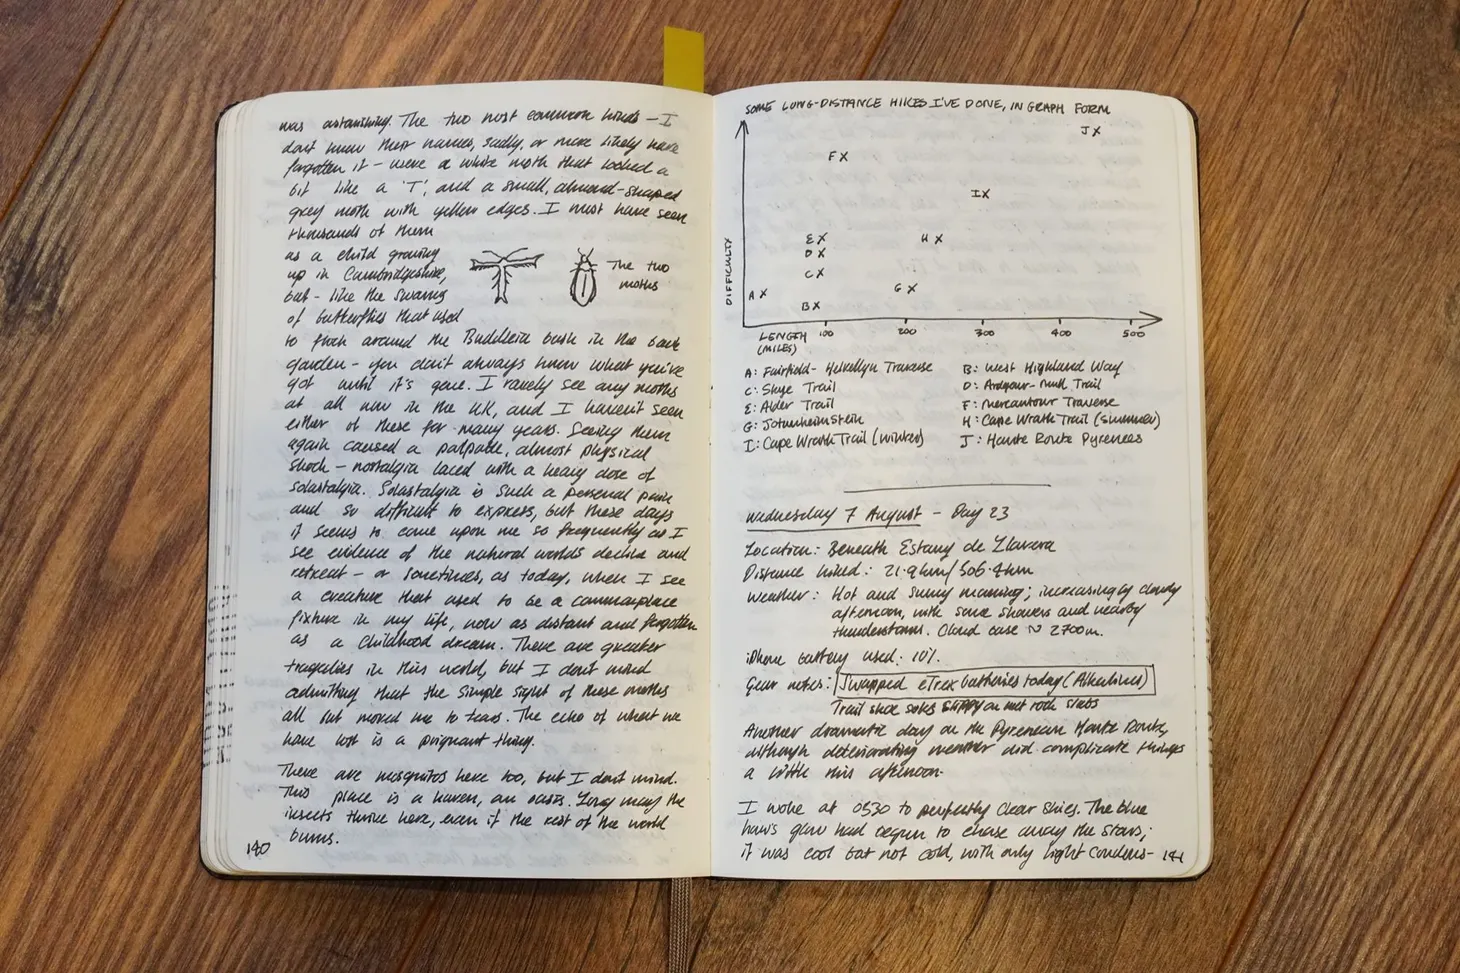 was astonishing. The two most common kinds – I
don't know their names, sadly, or more likely have
forgotten it – were a white moth that looked a
bit like a 'T', and a small, almond-shaped
grey moth with yellow edges. I must have seen
thousands of them
as a child growing
up in Cambridgeshire,
but – like the swarms
of butterflies that used
The two
moths
to flock around the Buddleia bush in the back
garden – you don't always know what you've
got until it's gone. I rarely see any moths
at all now in the UK, and I haven't seen
either of these for many years. Seeing them
again caused a palpable, almost physical
shock – nostalgia laced with a heavy dose of
solastalgia. Solastalgia is such a personal pain
and so difficult to express, but these days
it seems to come upon me so frequently as I
see evidence of the natural worlds decline and
retreat – or sometimes, as today, when I see
a creature that used to be a commonplace
fixture in my life, now as distant and forgotten
as a childhood dream. There are greater
tragedies in this world, but I don't mind
admitting that the simple sight of these moths
all but moved me to tears. The echo of what we
have lost is a poignant thing.
There are mosquitos here too, but I don't mind.
This place is a haven, an oasis. Long may the
insects thrive here, even if the rest of the world
burns.
140
SOME LONG-DISTANCE HIKES I'VE DONE, IN GRAPH FORM
J X
F X
I X
E X
H X
D X
C X
G X
A X
B X
DIFFICULTY
LENGTH
(MILES)
100 200 300 400 500
A: Fairfield-Helvellyn Traverse
B: West Highland Way
C: Skye Trail
D: Ardgour-Mull Trail
E: Alder Trail
F: Mercantour Traverse
G: Jotunheimstein
H: Cape Wrath Trail (summer)
I: Cape Wrath Trail (winter)
J: Haute Route Pyrenees
Wednesday 7 August – Day 23
Location: Beneath Estany de Llavera
Distance hiked: 21.9km/506.4km
Weather: Hot and sunny morning; increasingly cloudy
afternoon, with some showers and nearby
thunderstorms. Cloud base ~ 2700m.
iPhone battery used: 10%.
Gear notes: Swapped eTrex batteries today (Alkalines)
Trail shoe soles slippy on wet rock slabs
Another dramatic day on the Pyrenean Haute Route,
although deteriorating weather did complicate things
a little this afternoon.
I woke at 0530 to perfectly clear skies. The blue
hour glow had begun to chase away the stars;
it was cool but not cold, with only light condens-
141